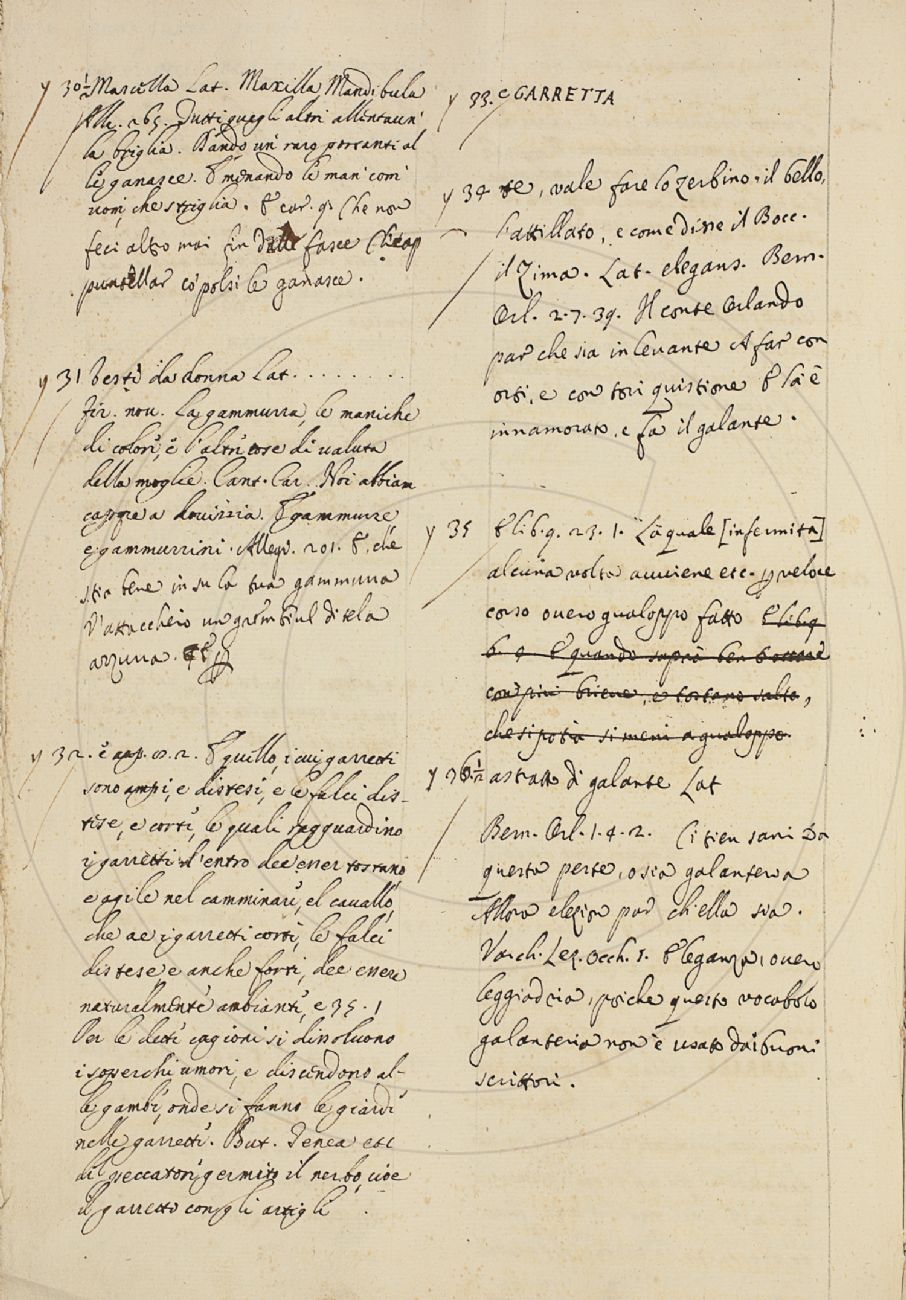 y 30½ Mascella Lat. Maxilla, Mandibula
Alle. 265. Tutti quegli altri allentaun'
la briglia. Dando un' raro
le ganasce. E menando le mani com'
uom, che striglia. E car. 9. Che non
feci altro mai in dalle fasce Che
puntellar co' polsi le ganasce.
y 31 Vesti da donna Lat. . . . . . . .
Fir. nov. La gammurra, le maniche
di colori, e l'altre cose di valuta
della moglie. Cant. Car. Noi abbiam
a dovizia. E gammurre,
e gammurrini. Alleg. 201. E, che
stia bene in su la tua gammurra
V'attacchéro un grembiul di tela
azzurra.
y 32. e cap. 2. E quello, i cui garretti
sono ampi, e distesi, e le falci dis-
tese, e corte, le quali ragguardino
i garretti d'entro dee esser tostano
e agile nel camminare, el cavallo,
che ae i garretti corti, le falci
distese, e anche forti, dee essere
naturalmente ambiante, e 35. 1
Per le dette cagioni si dissolvono
i soperchi umori, e discendono al-
le gambe, onde si fanno le giarde
nelle garrette. But. Tenea etc
de' peccatori germito il nerbo, cioè
il garretto con gli artigli.
y 33. e GARRETTA
y 34 te, vale fare lo zerbino, il bello,
l'attillato, e come disse il Bocc.
il Zima. Lat. elegans. Bern.
Orl. 2. 7. 39. Il conte Orlando
par che sia in levante A far con
orsi, e con tori quistione E là è
innamorato, e fa il galante.
y 35 E lib. 9. 23. 1. La quale [infermità]
alcuna volta avviene etc. per veloce
corso overo gualoppo fatto E lib. 9
6. 9. E quando saprà ben
con più brieve, e tostano salto,
che si potrà si meni a gualoppo.
y 36½ astratto di galante Lat
Bern. Orl. 1. 4. 2. Ci tien sani Da
questa peste, o sia galanteria
Allora elezion par ch'ella sia.
Varch. Lez. Occh. 1. Eleganza, overo
leggiadria, poiche questo vocabolo
galanteria non è usato dai buoni
scrittori.